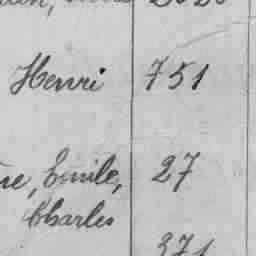 Henri 751
Emile, 27
Charles
371